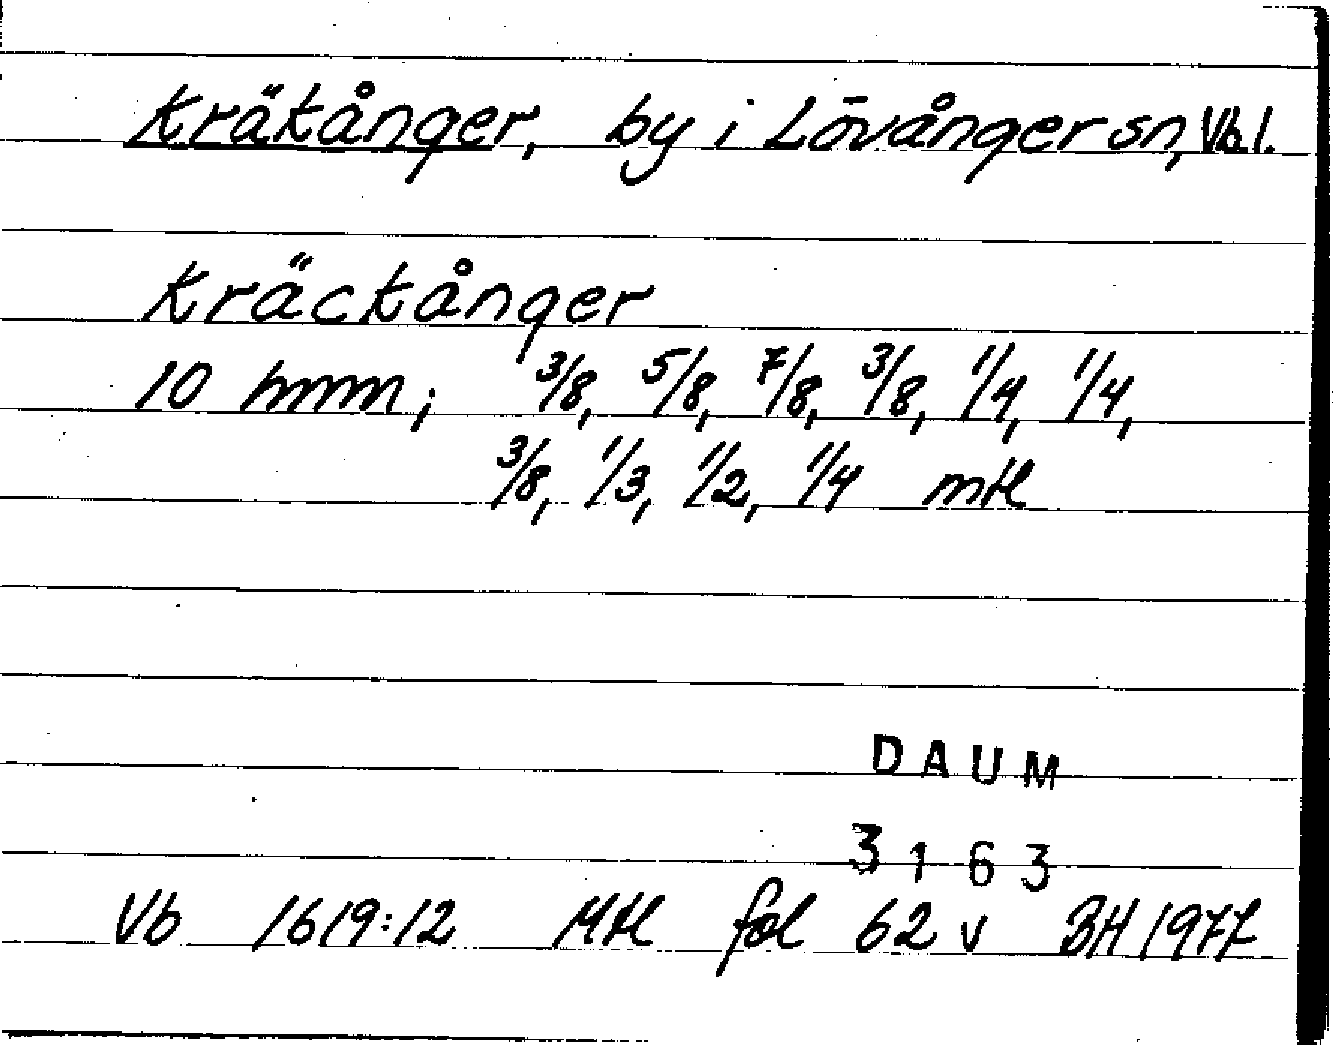 Kräkånger, by i Lövånger sn, Vb l.
Kräckånger
10 hmm; 3/8, 5/8, 7/8, 3/8, 1/4, 1/4,
3/8, 1/3, 1/2, 1/4 mtl
DAUM
3163
Vb 1619:12 Mtl fol 62 v BH 1977